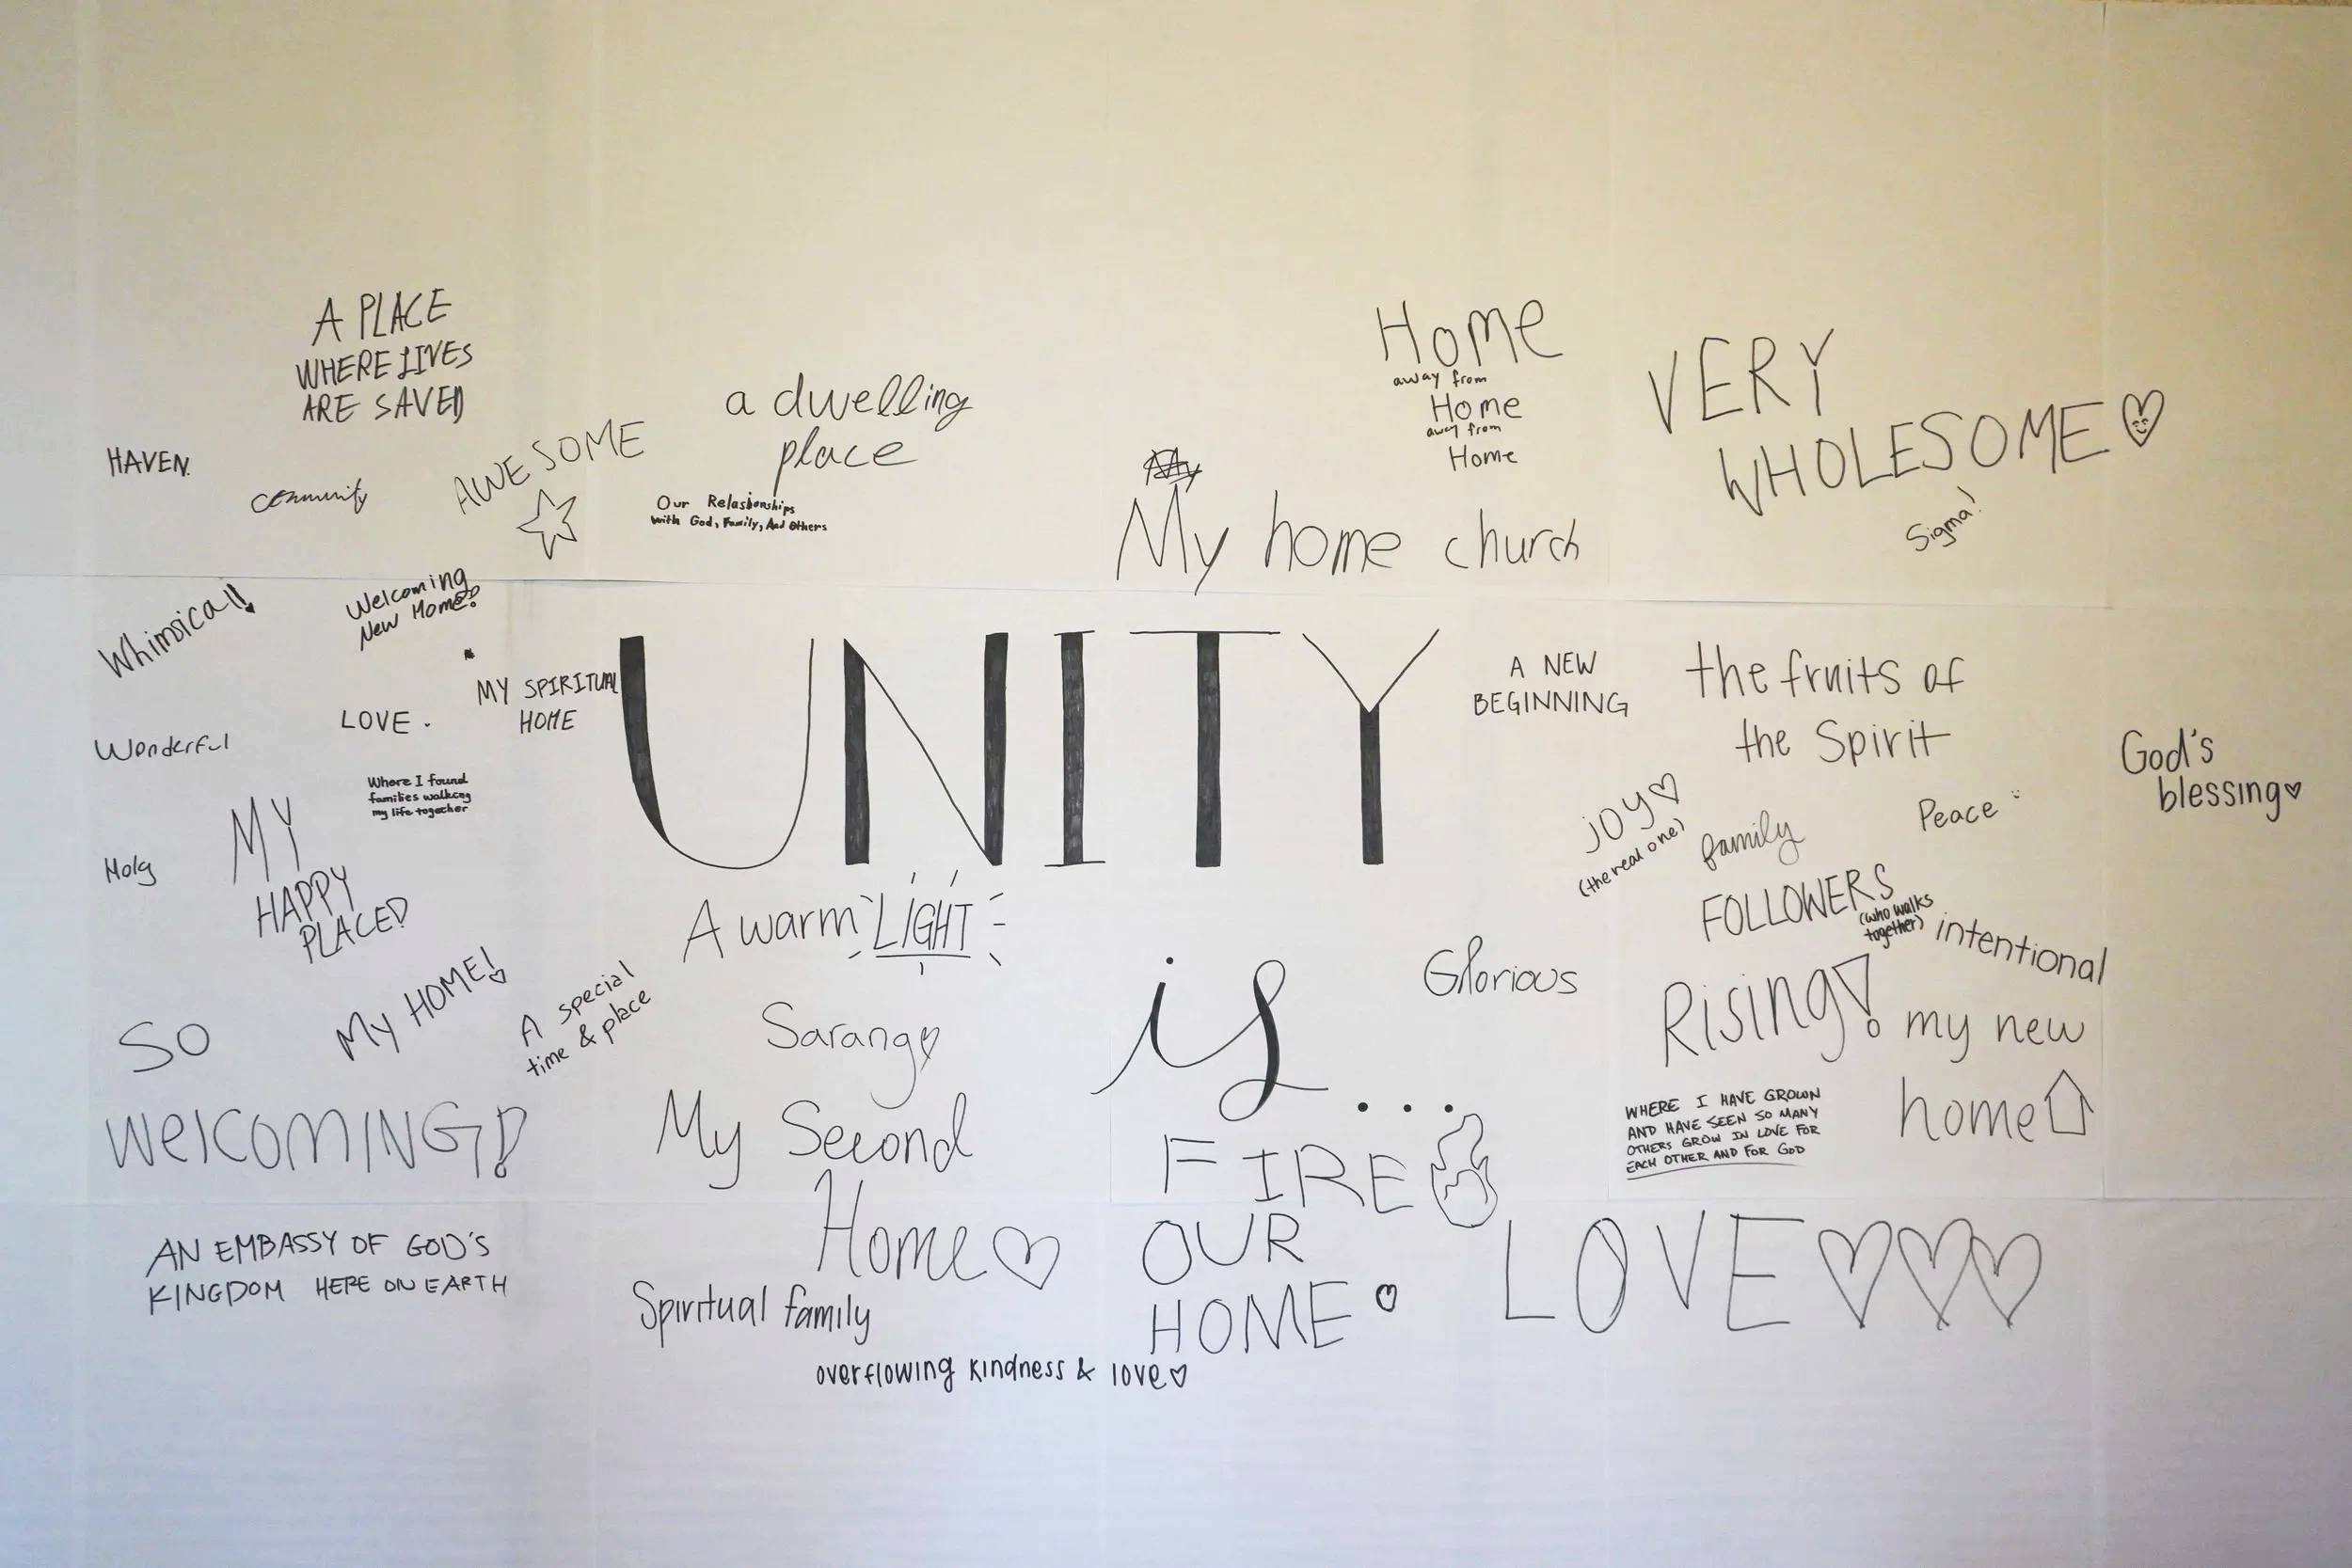 A PLACE
WHERE LIVES
ARE SAVED
HAVEN.
community
AWESOME
a dwelling
place
Our Relasionships
with God, Family, And Others
Home
away from
Home
away from
Home
My
My home church
VERY
WHOLESOME
Sigma!
Whimsical!!
Welcoming
New Home!
MY SPIRITUAL
HOME
LOVE.
Wonderful
Where I found
families walking
my life together
Holy
MY
HAPPY
PLACE
UNITY
is...
A NEW
BEGINNING
the fruits of
the Spirit
God's
blessing
JOY
(the real one)
family
Peace
FOLLOWERS
(who walks
together)
intentional
A warm LIGHT
Glorious
Rising!
my new
home
SO
WelcomING!
My HOME!
A special
time & place
Sarang
My Second
Home
FIRE
WHERE I HAVE GROWN
AND HAVE SEEN SO MANY
OTHERS GROW IN LOVE FOR
EACH OTHER AND FOR GOD
AN EMBASSY OF GOD'S
KINGDOM HERE ON EARTH
Spiritual family
OUR
HOME
LOVE
overflowing kindness & love